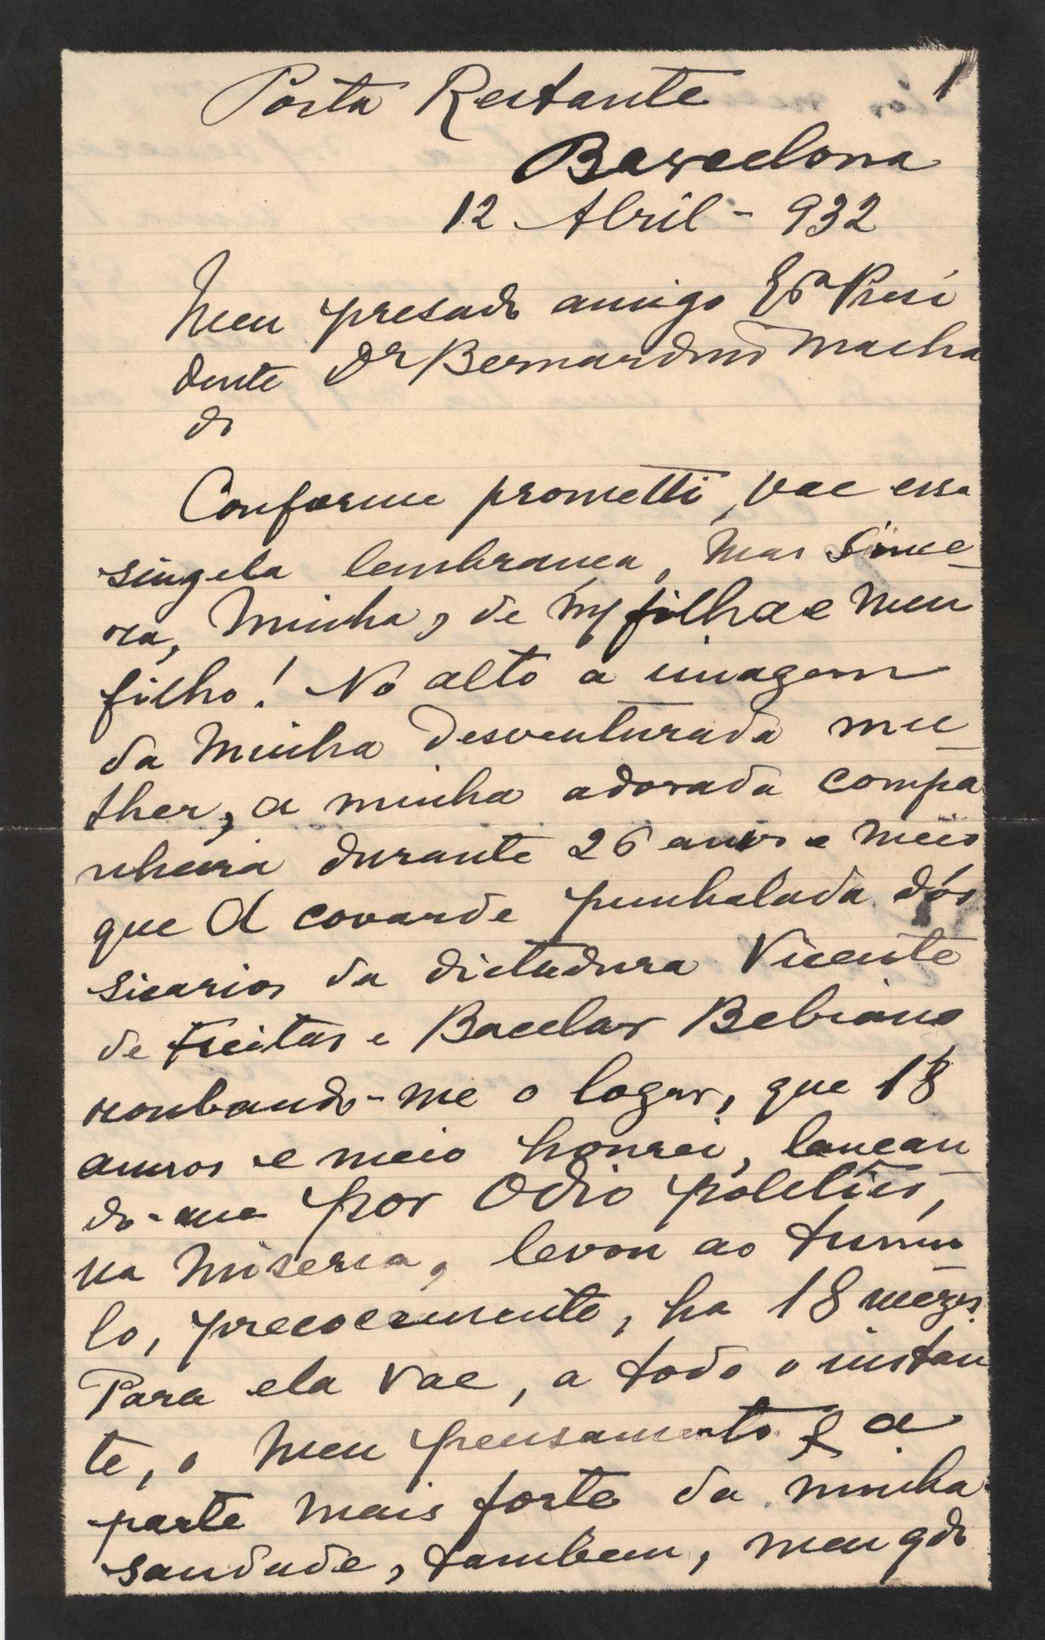 1
Posta Restante
Barcelona
12 Abril - 932
Meu presado amigo Exº Presi
dente Dr Bernardino Macha
do
Conforme prometti, vae essa
singela lembrança, mas since-
ra, minha, de mª filha e meu
filho! No alto a imagem
da minha desventurada mu-
lher, a minha adorada compa
nheira durante 26 anos e meio
que a covarde punhalada dos
sicarios da dictadura Vicente
de Freitas e Bacelar Bebiano
roubando-me o logar, que 18
annos e meio honrei, lançan
do-me por odio politico,
na miseria, levou ao tumu-
lo, precocemente, ha 18 mezes.
Para ela vae, a todo o instan
te, o meu pensamento e a
parte mais forte da minha
saudade, tambem, meu qdo